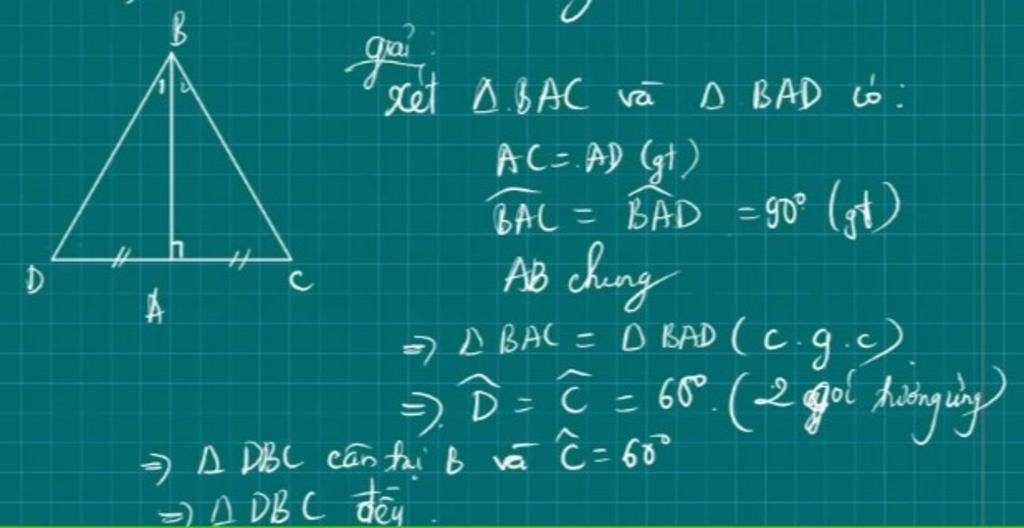 B
1 2
D
A
C
giải:
Xét Δ BAC và Δ BAD có:
AC = AD (gt)
\widehat{BAC} = \widehat{BAD} = 90° (gt)
AB chung
=> Δ BAC = Δ BAD (c.g.c)
=> \widehat{D} = \widehat{C} = 60°. (2 góc tương ứng)
=> Δ DBC cân tại B và \widehat{C} = 60°
=> Δ DBC đều.